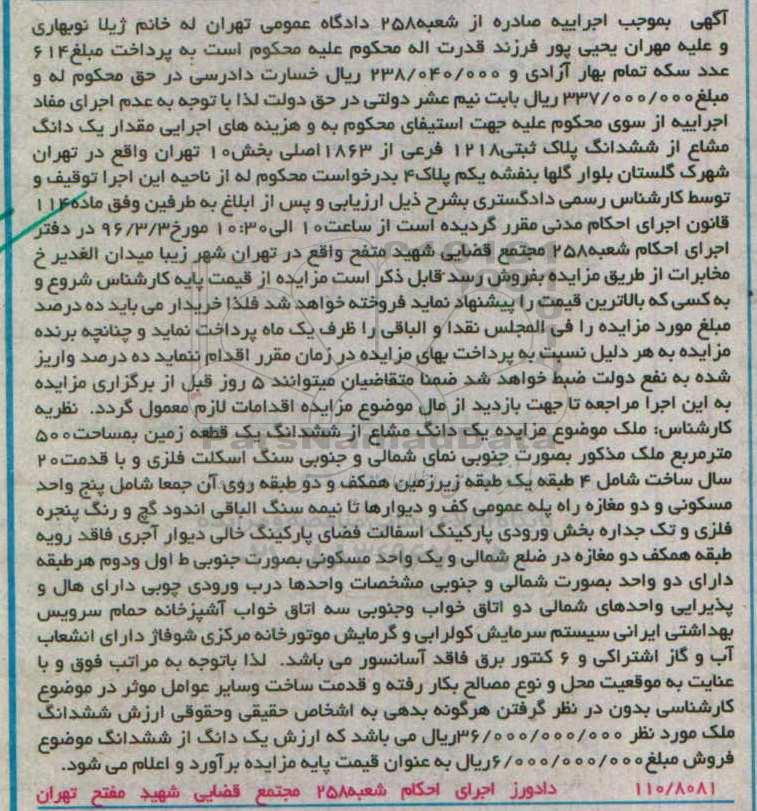 آگهی بموجب اجراییه صادره از شعبه۲۵۸ دادگاه عمومی تهران له خانم ژیلا نوبهاری
و علیه مهران یحیی پور فرزند قدرت اله محکوم علیه محکوم است به پرداخت مبلغ۶۱۴
عدد سکه تمام بهار آزادی و ۲۳۸/۰۴۰/۰۰۰ ریال خسارت دادرسی در حق محکوم له و
مبلغ۳۳۷/۰۰۰/۰۰۰ ریال بابت نیم عشر دولتی در حق دولت لذا با توجه به عدم اجرای مفاد
اجراییه از سوی محکوم علیه جهت استیفای محکوم به و هزینه های اجرایی مقدار یک دانگ
مشاع از ششدانگ پلاک ثبتی۱۲۱۸ فرعی از ۱۸۶۳اصلی بخش۱۰ تهران واقع در تهران
شهرک گلستان بلوار گلها بنفشه یکم پلاک۴ بدرخواست محکوم له از ناحیه این اجرا توقیف و
توسط کارشناس رسمی دادگستری بشرح ذیل ارزیابی و پس از ابلاغ به طرفین وفق ماده۱۱۴
قانون اجرای احکام مدنی مقرر گردیده است از ساعت۱۰ الی۱۰:۳۰ مورخ۹۶/۳/۳ در دفتر
اجرای احکام شعبه۲۵۸ مجتمع قضایی شهید متفح واقع در تهران شهر زیبا میدان الغدیر خ
مخابرات از طریق مزایده بفروش رسد قابل ذکر است مزایده از قیمت پایه کارشناس شروع و
به کسی که بالاترین قیمت را پیشنهاد نماید فروخته خواهد شد فلذا خریدار می باید ده درصد
مبلغ مورد مزایده را فی المجلس نقدا و الباقی را ظرف یک ماه پرداخت نماید و چنانچه برنده
مزایده به هر دلیل نسبت به پرداخت بهای مزایده در زمان مقرر اقدام ننماید ده درصد واریز
شده به نفع دولت ضبط خواهد شد ضمنا متقاضیان میتوانند ۵ روز قبل از برگزاری مزایده
به این اجرا مراجعه تا جهت بازدید از مال موضوع مزایده اقدامات لازم معمول گردد. نظریه
کارشناس: ملک موضوع مزایده یک دانگ مشاع از ششدانگ یک قطعه زمین بمساحت۵۰۰
مترمربع ملک مذکور بصورت جنوبی نمای شمالی و جنوبی سنگ اسکلت فلزی و با قدمت۲۰
سال ساخت شامل ۴ طبقه یک طبقه زیرزمین همکف و دو طبقه روی آن جمعا شامل پنج واحد
مسکونی و دو مغازه راه پله عمومی کف و دیوارها تا نیمه سنگ الباقی اندود گچ و رنگ پنجره
فلزی و تک جداره بخش ورودی پارکینگ اسفالت فضای پارکینگ خالی دیوار آجری فاقد رویه
طبقه همکف دو مغازه در ضلع شمالی و یک واحد مسکونی بصورت جنوبی ط اول ودوم هرطبقه
دارای دو واحد بصورت شمالی و جنوبی مشخصات واحدها درب ورودی چوبی دارای هال و
پذیرایی واحدهای شمالی دو اتاق خواب وجنوبی سه اتاق خواب آشپزخانه حمام سرویس
بهداشتی ایرانی سیستم سرمایش کولرابی و گرمایش موتورخانه مرکزی شوفاژ دارای انشعاب
آب و گاز اشتراکی و ۶ کنتور برق فاقد آسانسور می باشد. لذا باتوجه به مراتب فوق و با
عنایت به موقعیت محل و نوع مصالح بکار رفته و قدمت ساخت وسایر عوامل موثر در موضوع
کارشناسی بدون در نظر گرفتن هرگونه بدهی به اشخاص حقیقی وحقوقی ارزش ششدانگ
ملک مورد نظر ۳۶/۰۰۰/۰۰۰/۰۰۰ریال می باشد که ارزش یک دانگ از ششدانگ موضوع
فروش مبلغ۶/۰۰۰/۰۰۰/۰۰۰ریال به عنوان قیمت پایه مزایده برآورد و اعلام می شود.
۱۱۰/۸۰۸۱ دادورز اجرای احکام شعبه۲۵۸ مجتمع قضایی شهید مفتح تهران
ParsNamadData